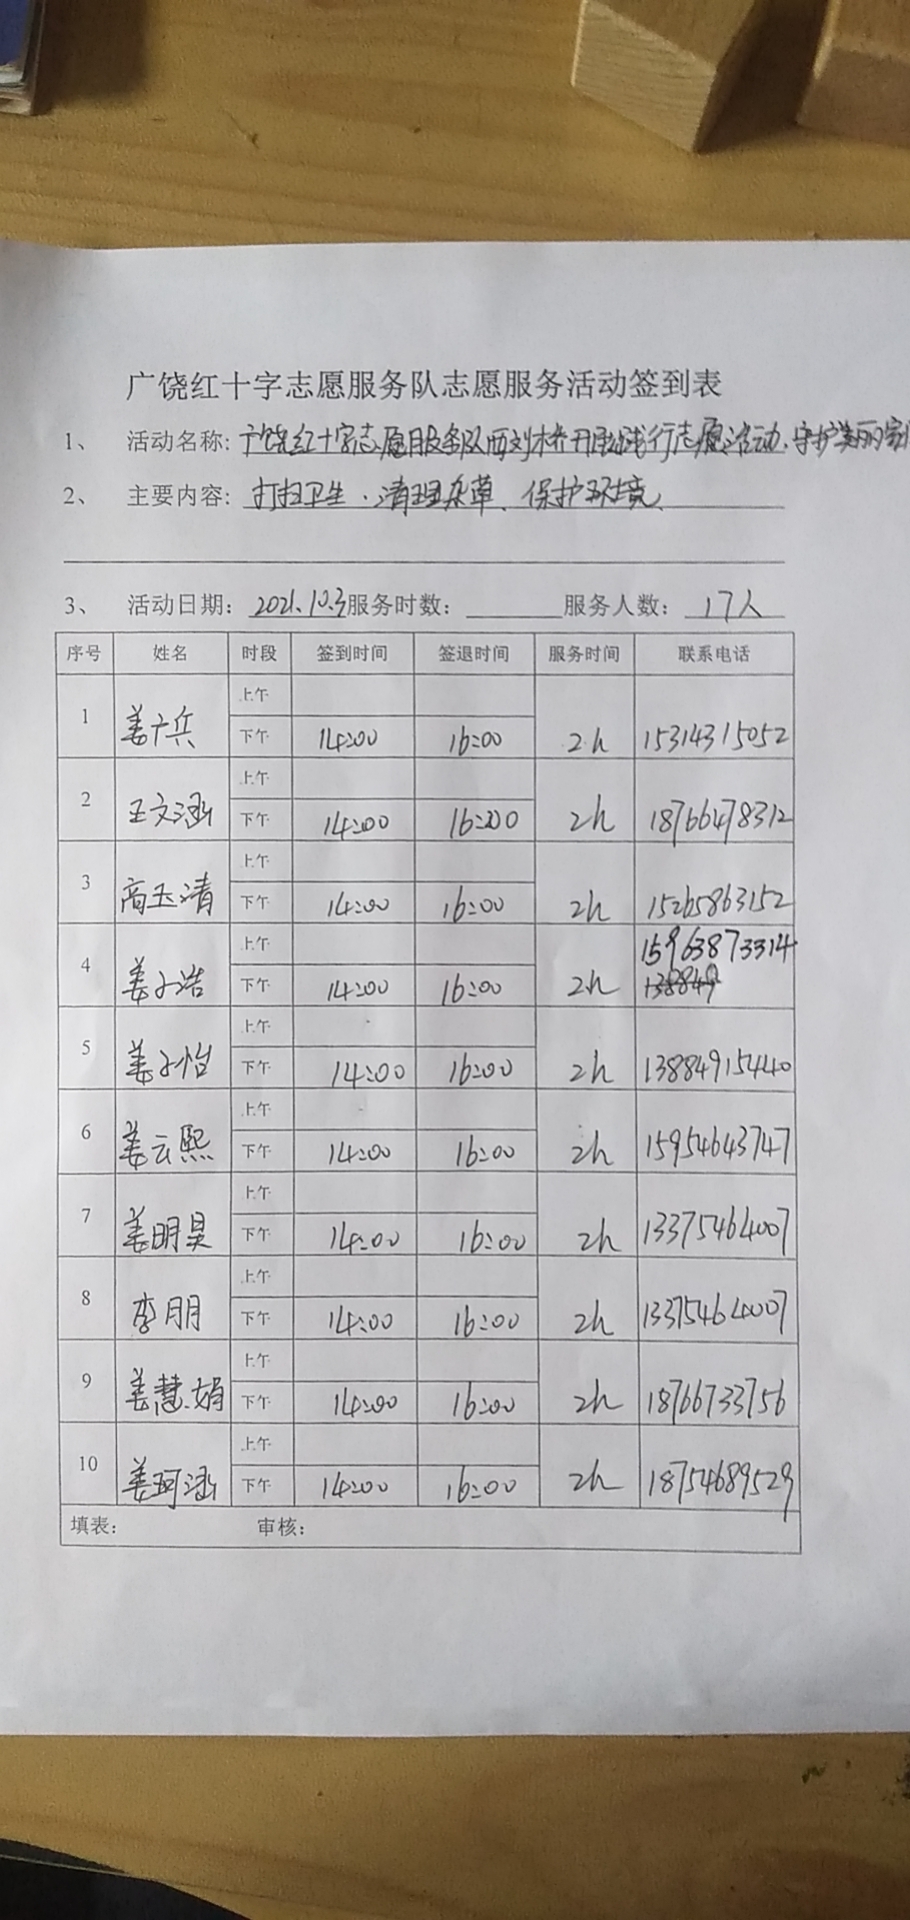 广饶红十字志愿服务队志愿服务活动签到表
1、 活动名称: 广饶红十字志愿服务队西刘桥开展践行志愿活动.守护美丽家
2、 主要内容: 打扫卫生、清理杂草、保护环境
3、 活动日期: 2021.10.3 服务时数: 服务人数: 17人
序号 姓名 时段 签到时间 签退时间 服务时间 联系电话
上午
1 姜广兵 下午 14:00 16:00 2h 15314315052
上午
2 王文涵 下午 14:00 16:00 2h 18766478312
上午
3 高玉清 下午 14:00 16:00 2h 15265863152
上午 15963873314
4 姜子浩 下午 14:00 16:00 2h 138849
上午
5 姜子怡 下午 14:00 16:00 2h 13884915440
上午
6 姜云熙 下午 14:00 16:00 2h 15954643747
上午
7 姜明昊 下午 14:00 16:00 2h 13375464007
上午
8 李朋 下午 14:00 16:00 2h 13375464007
上午
9 姜慧娟 下午 14:00 16:00 2h 18766733756
上午
10 姜珂涵 下午 14:00 16:00 2h 18754689529
填表: 审核: